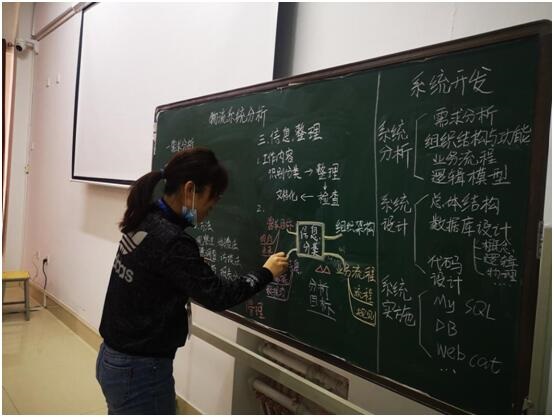 物流系统分析
一.需求分析
三.信息整理
1.工作内容
识别分类→整理
文档化←检查
2.
信息
分类
组织架构
业务流程
流程
规则
分析
目标
管理
系统开发
系统
分析
需求分析
组织结构与功能
业务流程
逻辑模型
系统
设计
总体结构
数据库设计
概念
逻辑
物理
代码
设计
系统
实施
My SQL
DB
Web cat
...
adidas